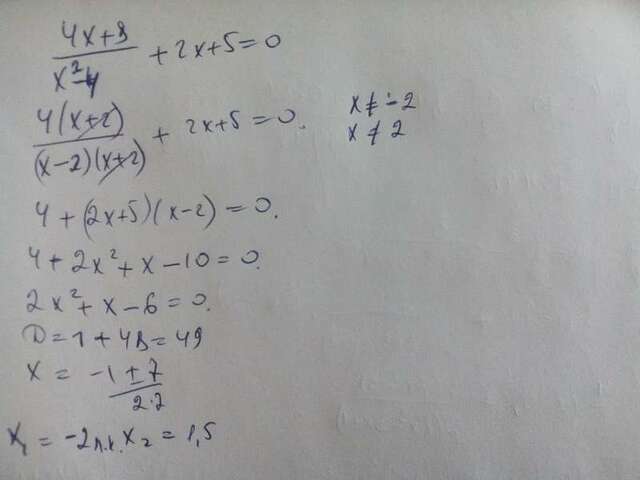 (4x+8)/(x²-4) + 2x+5=0
4(x+2)/((x-2)(x+2)) + 2x+5=0. x≠-2
x≠2
4+(2x+5)(x-2)=0.
4+2x²+x-10=0.
2x²+x-6=0.
D=1+48=49
x = (-1±7)/(2·2)
x₁=-2п.к. x₂=1,5